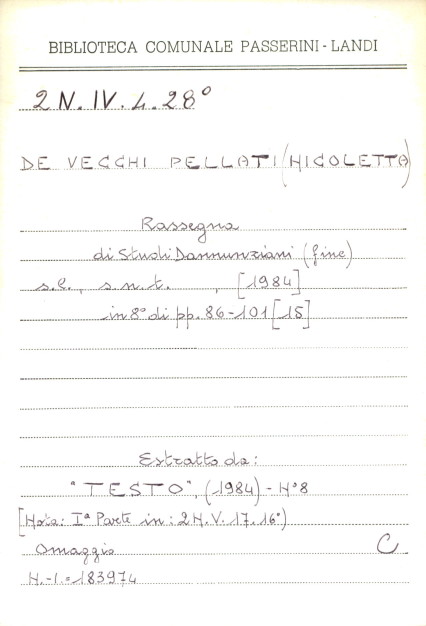 BIBLIOTECA COMUNALE PASSERINI-LANDI
2 N. IV. 4. 28°
DE VECCHI PELLATI (NICOLETTA)
Rassegna
di Studi Dannunziani (fine)
s.l., s.n.t., [1984]
in 8° di pp. 86-101 [15]
Estratto da:
"TESTO", (1984) - N° 8
[Nota: Iª Parte in: 2 N. V. 17. 16°)
Omaggio C.
N.-I. = 183974